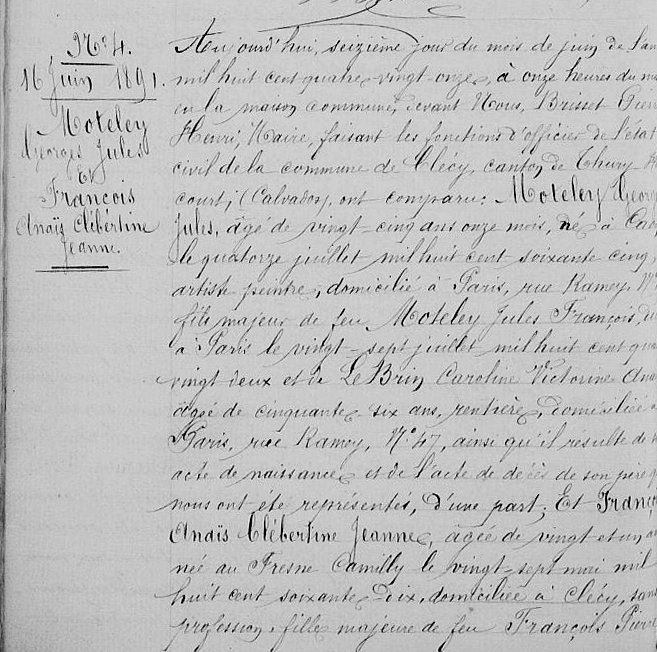 N° 4.
16 Juin 1891.
Moteley
Georges Jules
Et
François
Anaïs Clébertine
Jeanne.
Aujourd'hui, seizième jour du mois de juin de l'an
mil huit cent quatre-vingt-onze, à onze heures du ma
en la maison commune, devant Nous, Brisset Pierre
Henri, Maire, faisant les fonctions d'officier de l'état
civil de la commune de Clécy, canton de Thury-H
court, (Calvados), ont comparu: Moteley Georg
Jules, âgé de vingt-cinq ans onze mois, né à Cae
le quatorze juillet mil huit cent soixante cinq,
artiste peintre, domicilié à Paris, rue Ramey, N°
fils majeur de feu Moteley Jules François, dé
à Paris le vingt-sept juillet mil huit cent qua
vingt deux et de Le Brin Caroline Victorine
âgée de cinquante-six ans, rentière, domiciliée à
Paris, rue Ramey, N° 47, ainsi qu'il résulte de
acte de naissance et de l'acte de décès de son père q
nous ont été représentés, d'une part; Et Franço
Anaïs Clébertine Jeanne, âgée de vingt et un an
née au Fresne Camilly le vingt-sept mai mil
huit cent soixante dix, domiciliée à Clécy, sans
profession, fille majeure de feu François Pierre